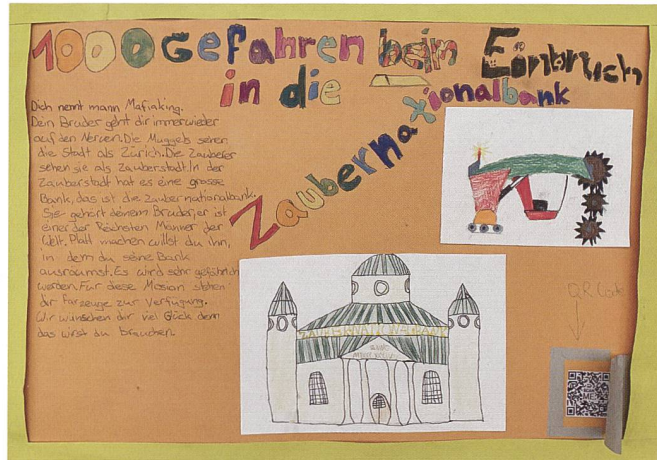 1000 Gefahren beim Einbruch
in die
Zaubernationalbank
Dich nennt mann Mafiaking.
Dein Bruder geht dir immer wieder
auf den Nerven. Die Muggels sehen
die Stadt als Zürich. Die Zauberer
sehen sie als Zauberstadt. In der
Zauberstadt hat es eine grosse
Bank, das ist die Zaubernationalbank.
Sie gehört deinem Bruder, er ist
einer der Reichsten Männer der
Welt. Platt machen willst du ihn,
in dem du seine Bank
ausräumst. Es wird sehr gefährlich
werden. Für diese Mission stehen
dir Farzeuge zur Verfügung.
Wir wünschen dir viel Glück denn
das wirst du brauchen.
ZAUBERNATIONALBANK
QR Cod